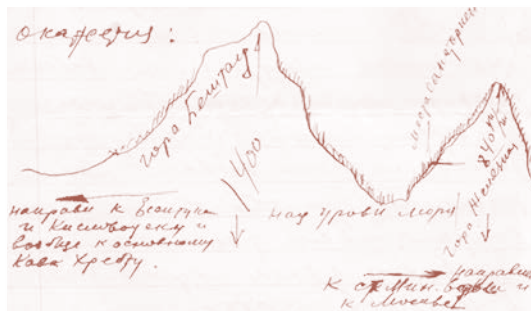 гора Бештау
1400
над уровн моря
Мюра санаторий
840 м
гора Железная
направл к Ессентука
и Кисловодску и
вообще к основному
Кавк Хребту.
направл
к ст Мин. воды и
к Москве